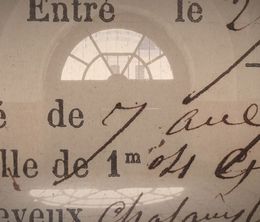 Entré le 2
é de 7 ans
lle de 1m 04 c
eveux Chatains